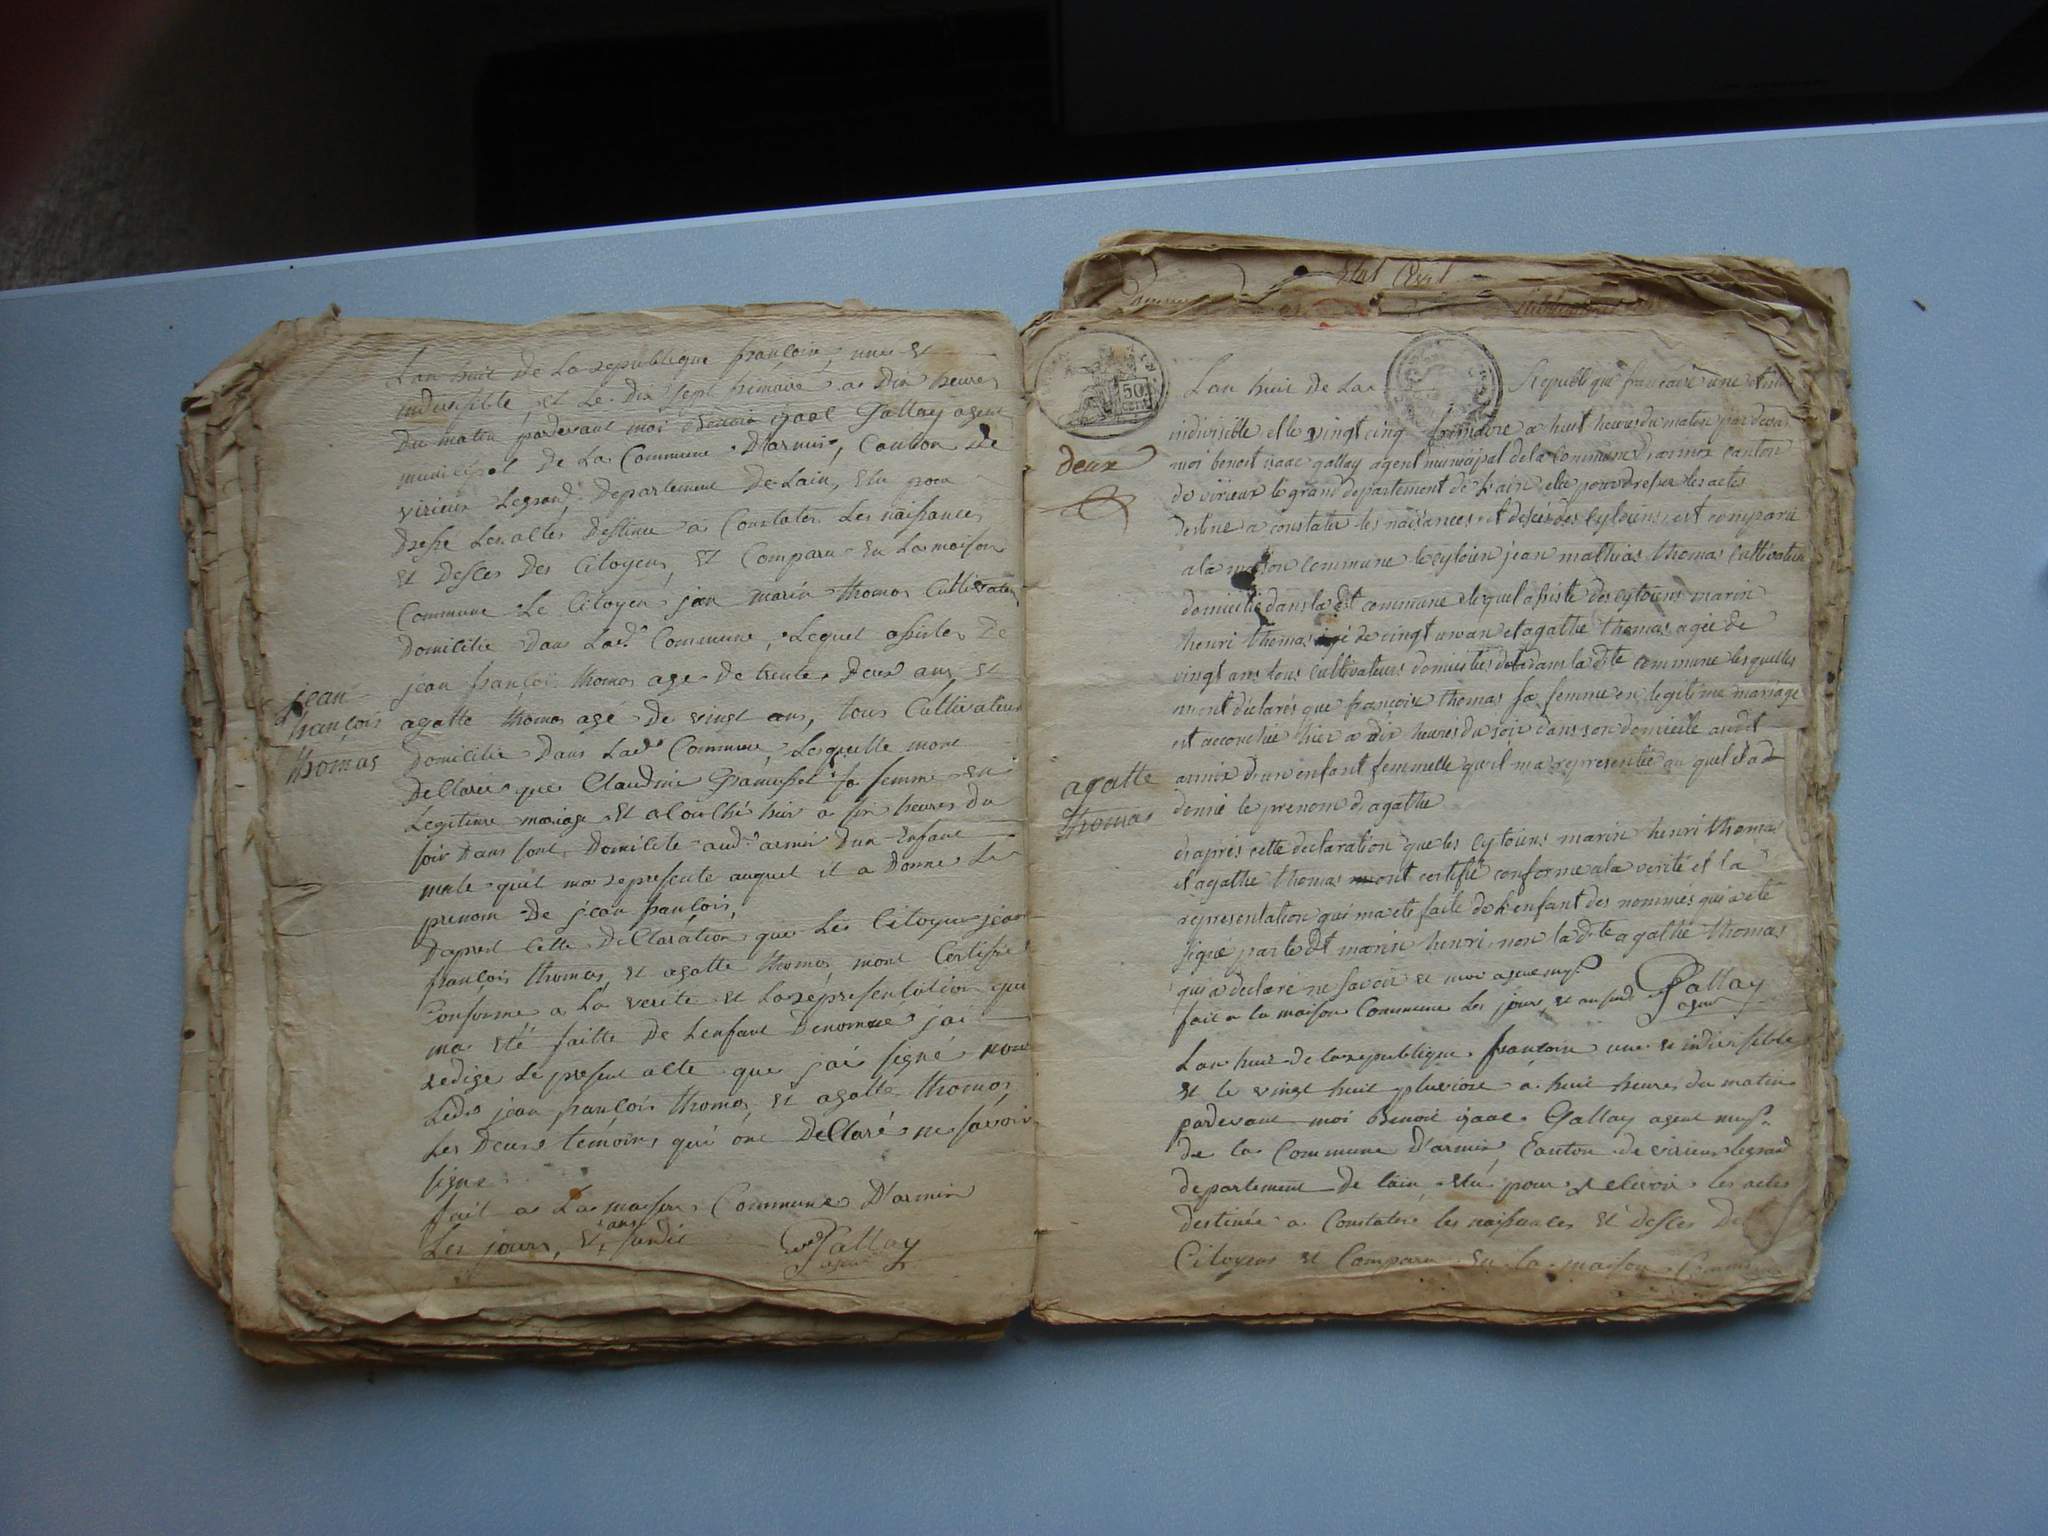 Lan huit de La republique françoise, une et
indivisible, et Le Dix sept frimaire a Dix heures
Du matin pardevant moi Benoit isaac Gallay agent
municipal de La Commune D'armix, Canton de
virieux Legrand Departement De Lain, Elu pour
Dresse Les actes Destinee a Constater Les naissances
et Desces Des Citoyens, et Comparu En La maison
Commune Le Citoyen jean marin thomas Cultivateur
Domicilie Dans Lade Commune, Lequel assister De
jean françois thomas age De trente Deux ans, et
agatte thomas agé De vingt ans, tous Cultivateur
Domicilie Dans Lade Commune, Lesquelle mont
Declaree que Claudine sa femme en
Legitime mariage Et acouché hier a six heures Du
soir Dans sont Domicile aud. armix Dun Enfant
male quil ma represente auquel il a Donne Le
prenom De jean françois,
Dapres Cette Declaration que Les Citoyens jean
françois thomas, et agatte thomas mont Certifie
Conforme a La verite et La représentation qui
ma été faitte De Lenfant Denomme jai
redige Le present acte que jai signé non
Led. jean françois thomas, et agatte thomas,
Les Deux témoins qui ónt Dellaré ne savoir
signe
fait a La maison Commune D'armix
Les jours, et ans susdit
Gallay
agent
jean
françois
thomas
Etat Civil
50
Lan huit de La Republique francaise une et
indivisible et le vingt cinq frimaire a huit heures du matin par deva
moi benoit isaac gallay agent municipal de la commune d'armix canton
de virieux le grand departement de l'ain elu pour dresser les actes
destine a constater les naisances et deces des Cytoiens, est comparu
a la maison commune le cytoien jean mathias thomas Cultivateur
domicilie dans la dit commune lequel assiste des cytoiens marin
henri thomas agé de vingt un an et agathe thomas agée de
vingt ans tous cultivateurs domiciliés dans la dte commune lesquelles
m'ont déclarés que françoise thomas sa femme en legitime mariage
est accouchée hier a dix heures du soir dans son domicile audit
armix d'un enfant femmelle qu'il ma representée au quel il a
donné le prenom d'agathe
d'après cette declaration que les cytoiens marin henri thomas
et agathe thomas mont certifié conforme a la verité et la
representation qui ma eté faite de l'enfant des nommés qui a eté
signé par le dt marin henri, non la dte agathe thomas
qui a declaré ne savoir et moi agent
fait a la maison Commune Les jours, et an susd. Gallay
agent
deux
agatte
thomas
Lan huit de la republique françoise une et indivisible
et le vingt huit pluviose a huit heures du matin
pardevant moi Benoit isaac Gallay agent
de la Commune D'armix, Canton de virieux legrand
departement De lain, élu pour recevoir les actes
destinée a Constater les naissances et Desces De
Citoyens et Comparu En la maison Commune